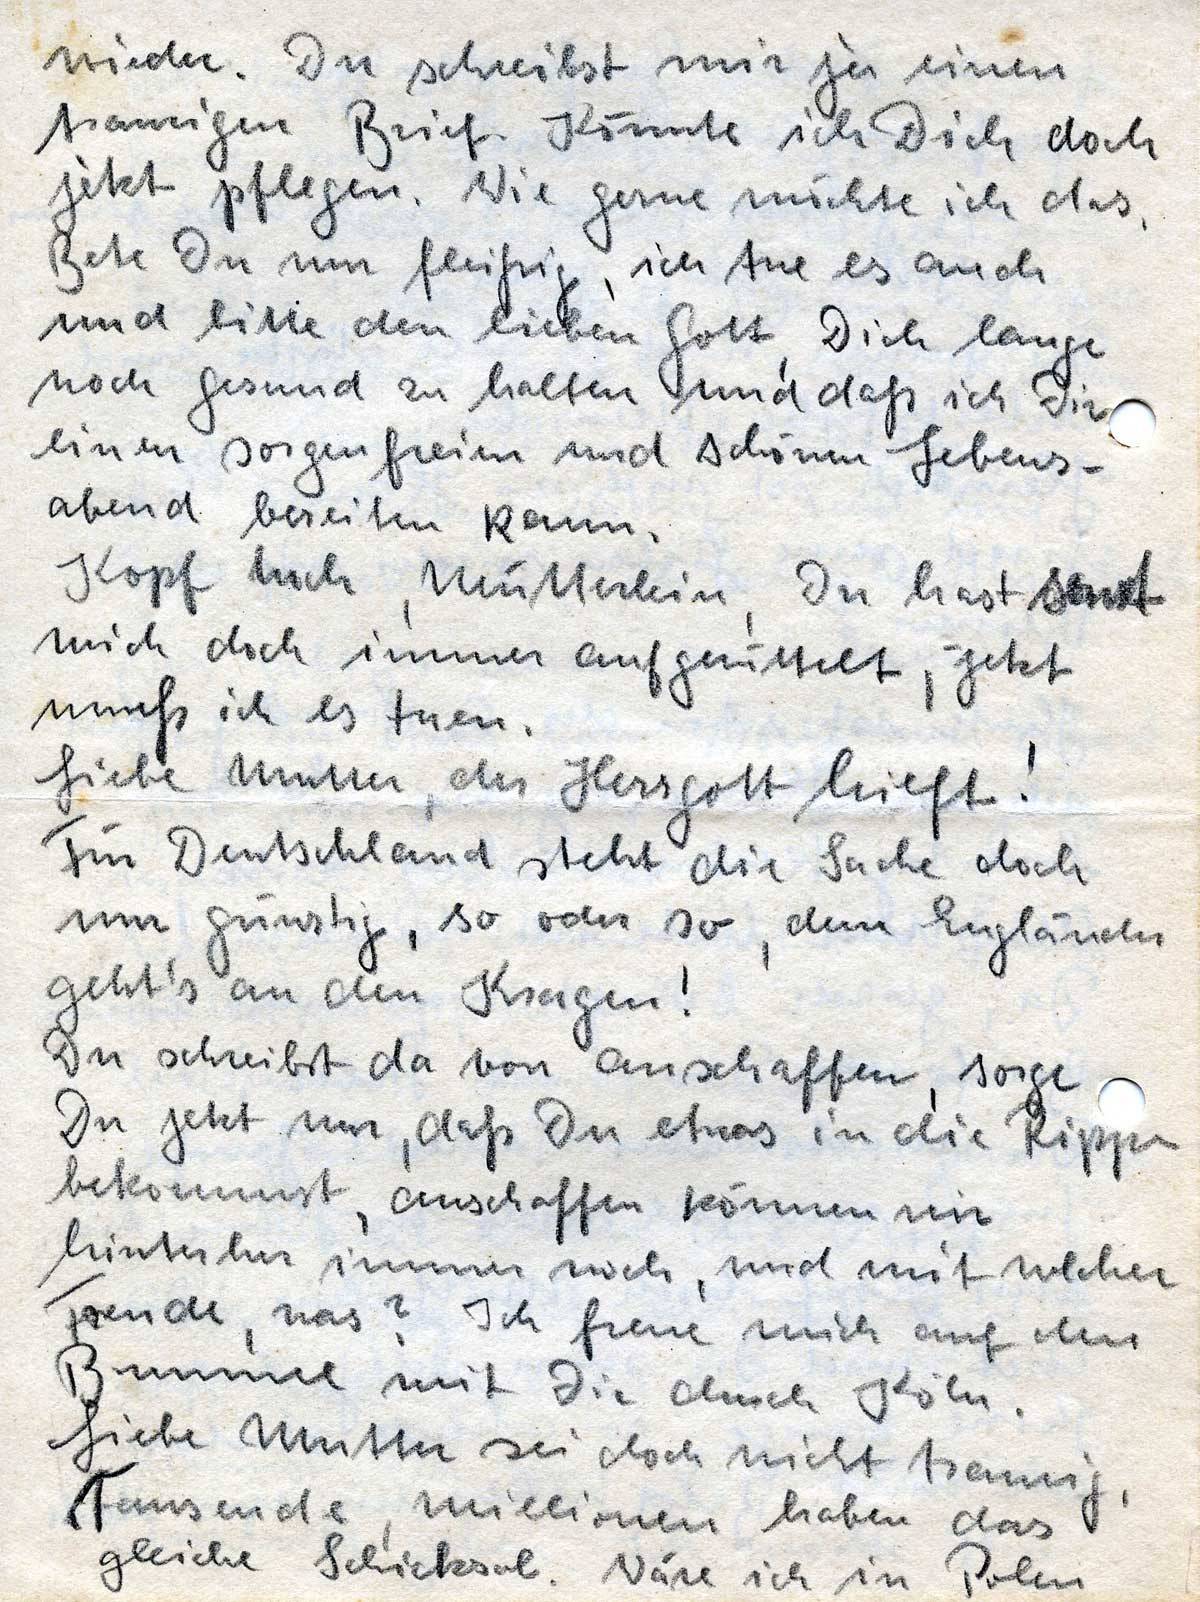 wieder. Du schreibst mir ja einen
traurigen Brief. Könnte ich Dich doch
jetzt pflegen. Wie gerne möchte ich das.
Bete Du nur fleißig, ich tue es auch
und bitte den lieben Gott, Dich lange
noch gesund zu halten und daß ich Dir
einen sorgenfreien und schönen Lebens-
abend bereiten kann.
Kopf hoch, Mütterlein, Du hast sonst
mich doch immer aufgerüttelt, jetzt
muß ich es tuen.
Liebe Mutter, der Herrgott hielft!
Für Deutschland steht die Sache doch
nur günstig, so oder so, dem Engländer
geht's an den Kragen!
Du schreibst da von anschaffen, sorge
Du jetzt nur, daß Du etwas in die Rippen
bekommst, anschaffen können wir
hinterher immer noch, und mit welcher
Freude, was? Ich freue mich auf den
Bummel mit Dir durch Köln.
Liebe Mutter sei doch nicht traurig,
Tausende, Millionen haben das
gleiche Schicksal. Wäre ich in Polen